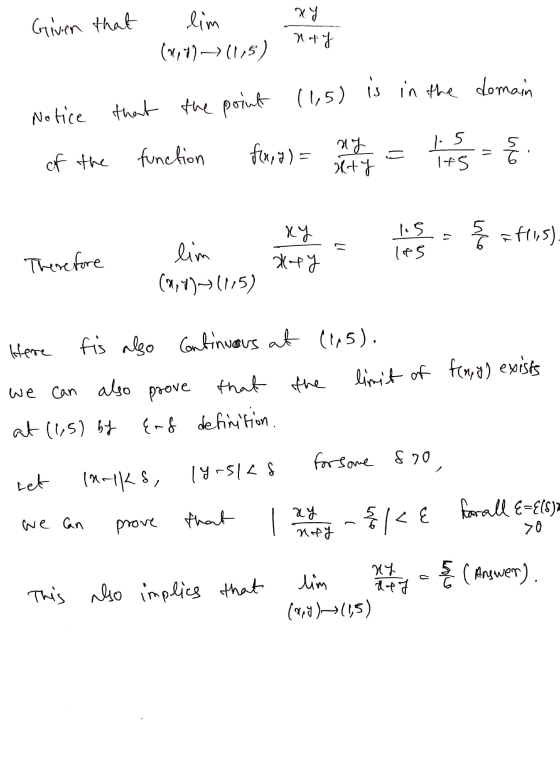 Given that lim xy/x+y
(x,y)→(1,5)
Notice that the point (1,5) is in the domain
of the function f(x,y) = xy/x+y = 1·5/1+5 = 5/6.
Therefore lim xy/x+y = 1·5/1+5 = 5/6 = f(1,5).
(x,y)→(1,5)
Here f is also continuous at (1,5).
we can also prove that the limit of f(x,y) exists
at (1,5) by ε-δ definition.
Let |x-1|<δ, |y-5|<δ for some δ>0,
we can prove that |xy/x+y - 5/6| < ε for all ε=ε(δ)
>0
This also implies that lim xy/x+y = 5/6 (Answer).
(x,y)→(1,5)